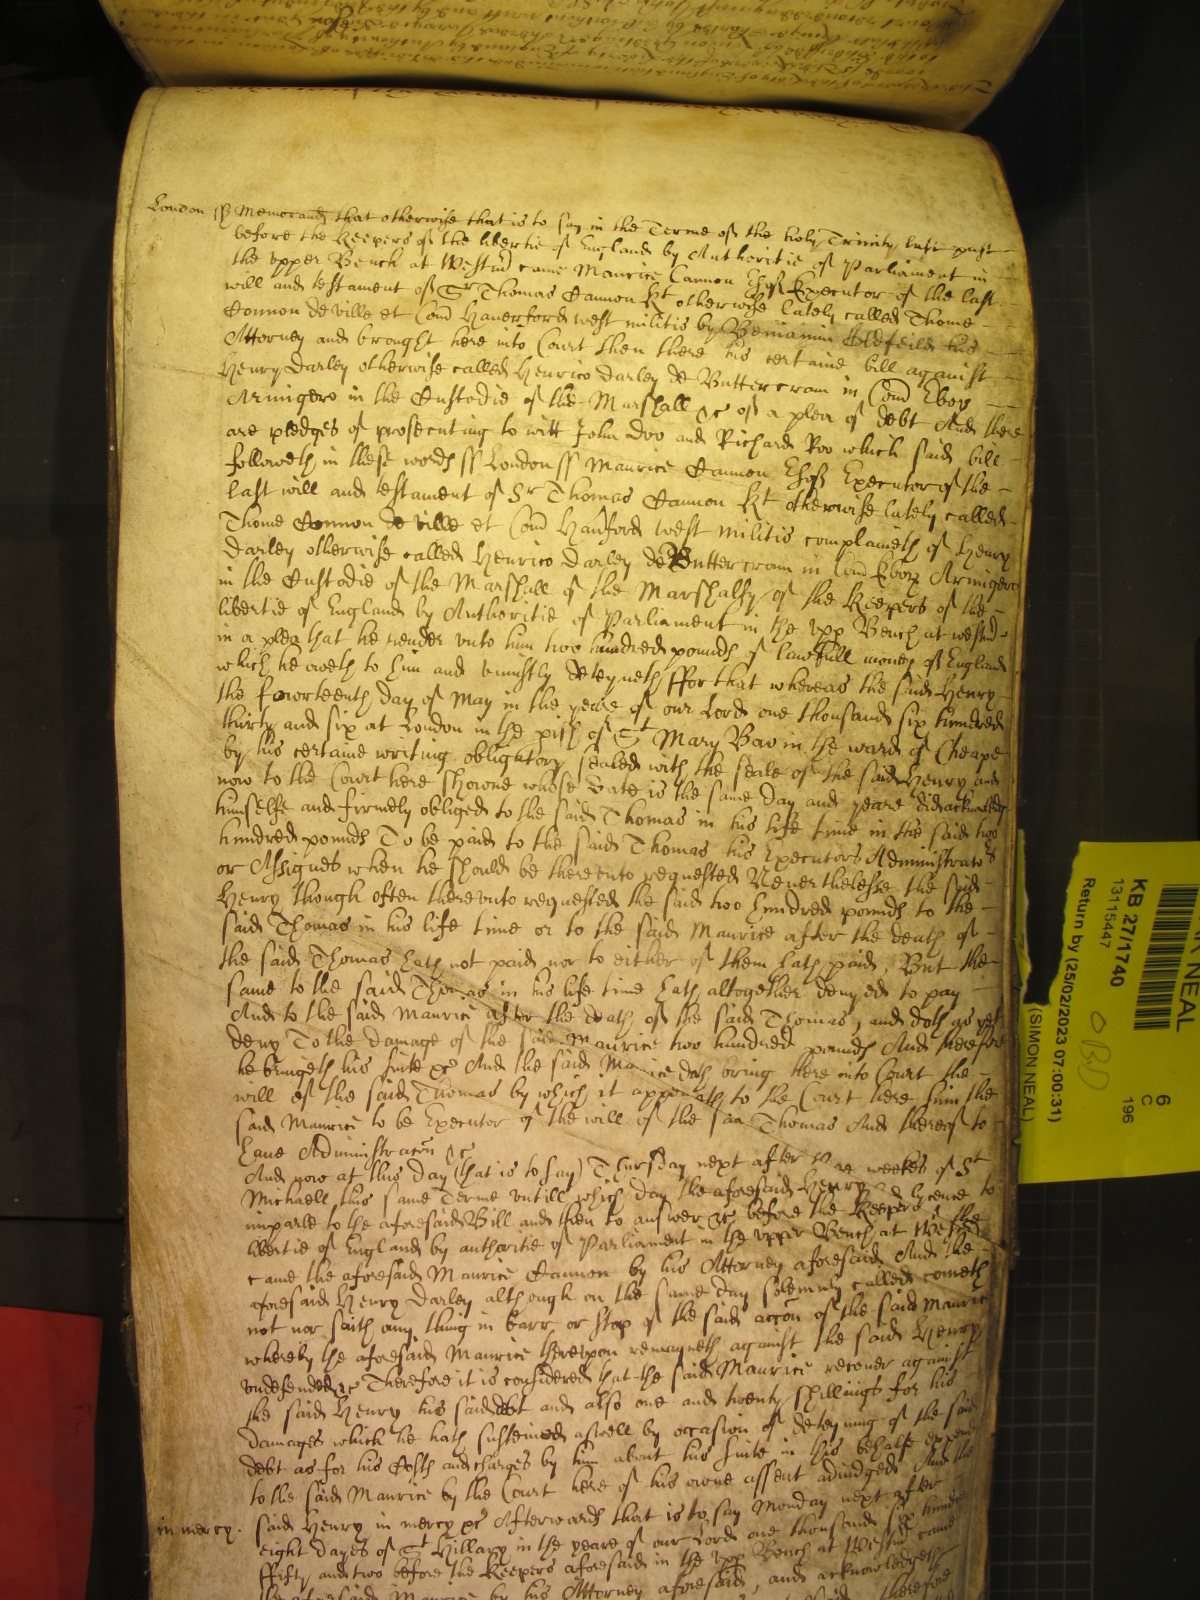 London ss Memorand that otherwise that is to say in the Terme of the holy Trinity last past
before the Keepers of the libertie of England by Authoritie of Parliament in
the vpper Bench at Westmr came Maurice Cannon Esqr Executor of the last
will and testament of Sr Thomas Cannon Kt otherwise lately called Thome
Connon de ville et Com Hauerford west militis by Beniamin Oldfeild his
Attorney and brought here into Court then there his certaine bill against
Henry Darley otherwise called Henrico Darley de Buttercram in Com Ebor
Armigero in the Custodie of the Marshall &c of a plea of debt And there
are pledges of prosecuting to witt John Doo and Richard Roo which said bill
followeth in these words ss London ss Maurice Cannon Esqr Executor of the
last will and testament of Sr Thomas Cannon Kt otherwise lately called
Thome Connon de ville et Com Hauford west militis complaineth of Henry
Darley otherwise called Henrico Darley de Buttercram in Com Ebor Armigero
in the Custodie of the Marshall of the Marshalsy of the Keepers of the
libertie of England by Authoritie of Parliament in the vpp Bench at westmr
in a plea that he render vnto him two hundred pounds of lawfull money of England
which he oweth to him and uniustly deteyneth ffor that whereas the said Henry
the fowerteenth day of May in the yeare of our Lord one thousand six hundred
thirty and six at London in the pish of St Mary Bow in the ward of Cheape
by his certaine writing obligatory sealed with the seale of the said Henry and
now to the Court here showne whose date is the same day and yeare did acknowledge
himselfe and firmely obliged to the said Thomas in his life time in the said two
hundred pounds To be paid to the said Thomas his Executors Administrators
or Assignes when he should be therevnto requested Neuerthelesse the said
Henry though often therevnto requested the said two hundred pounds to the
said Thomas in his life time or to the said Maurice after the death of
the said Thomas hath not paid nor to either of them hath paid, But the
same to the said Thomas in his life time hath altogether denyed to pay
And to the said Maurice after the death of the said Thomas, and doth as yet
deny To the damage of the said Maurice two hundred pounds And therefore
he bringeth his suite &c And the said Maurice doth bring here into Court the
will of the said Thomas by which it appeareth to the Court here him the
said Maurice to be Executor of the will of the said Thomas And thereof to
haue Administracon &c
And now at this day (that is to say) Thursday next after three weekes of St
Michaell this same Terme vntill which day the aforesaid Henry had lycence to
imparle to the aforesaid Bill and then to answer &c before the Keepers of the
libertie of England by authoritie of Parliament in the vpper Bench at Westmr
came the aforesaid Maurice Cannon by his Attorney aforesaid And the
aforesaid Henry Darley although on the same day solemnly called cometh
not nor saith any thing in barr or stop of the said accon of the said Maurice
whereby the aforesaid Maurice therevpon remayneth against the said Henry
vndefended &c Therefore it is considered that the said Maurice recouer against
the said Henry his said debt and also one and twenty shillings for his
damages which he hath susteined aswell by occasion of deteyning of the said
debt as for his Costs and charges by him about his suite in this behalfe expended
to the said Maurice by the Court here of his owne assent adiudged And the
in mercy. said Henry in mercy &c Afterwards that is to say Monday next after
eight dayes of St Hillary in the yeare of our Lord one thousand six hundred
ffifty and two before the Keepers aforesaid in the vpp Bench at Westmr came
the aforesaid Maurice by his Attorney aforesaid, and acknowledgeth
therefore
NEAL
KB 27/1740
13115447
Return by (25/02/2023 07:00:31)
(SIMON NEAL)
6
C
196
OBD